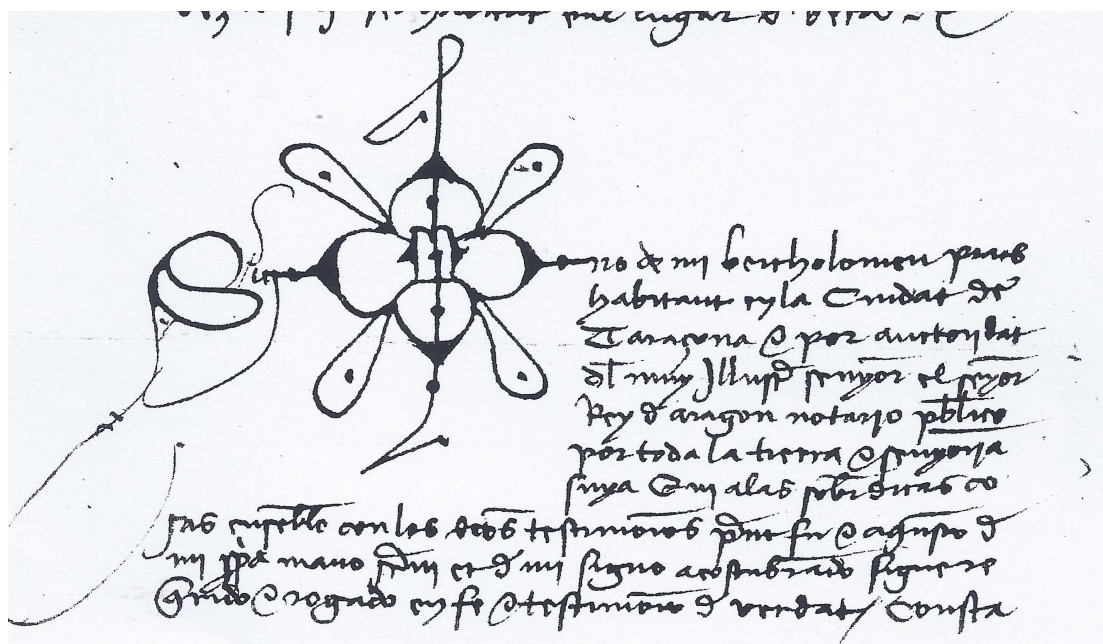 en lugar
Sig no de mi bertholomeu prats
habitant en la Ciudat de
Taraçona & por auctoridat
dl muy Illustr senyor el senyor
Rey d aragon notario publico
por toda la tierra & senyoria
suya Qui a las sobrdictas co
sas ensemble con los dctos testimonios pnt fu & aquesto d
mi ppa mano scriui et d mi signo acostubrado signe re
qrido & rogado en fe & testimonio d verdat Consta